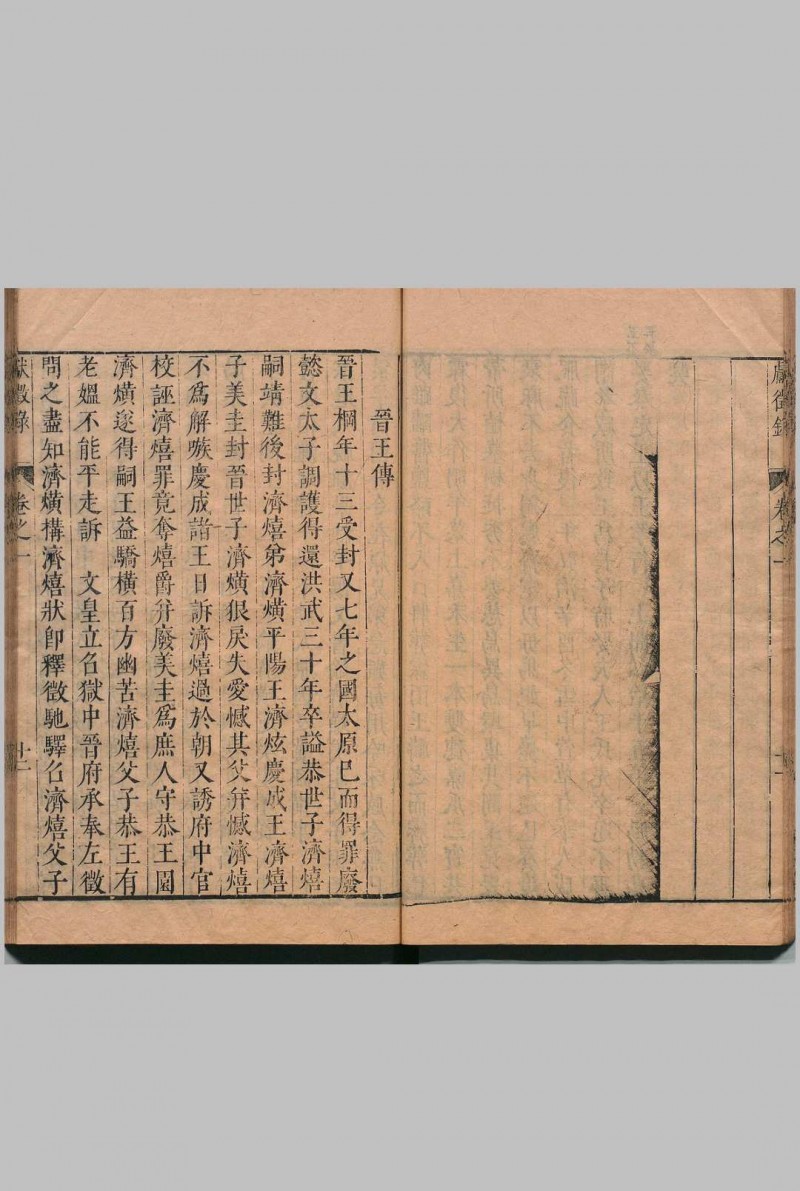 獻徵錄
卷之一
十一
晉王傳
晉王棡年十三受封又七年之國太原已而得罪廢
懿文太子調護得還洪武三十年卒謚恭世子濟熺
嗣靖難後封濟熺弟濟熿平陽王濟炫慶成王濟熺
子美圭封晉世子濟熿狠戾失愛憾其父幷憾濟熺
不爲解嗾慶成諸王日訴濟熺過於朝又誘府中官
校誣濟熺罪竟奪熺爵幷廢美圭爲庶人守恭王園
濟熿遂得嗣王益驕橫百方幽苦濟熺父子恭王有
老媼不能平走訴 文皇立召獄中晉府承奉左微
問之盡知濟熿構濟熺狀卽釋微馳驛召濟熺父子
獻徵錄
卷之一
十二